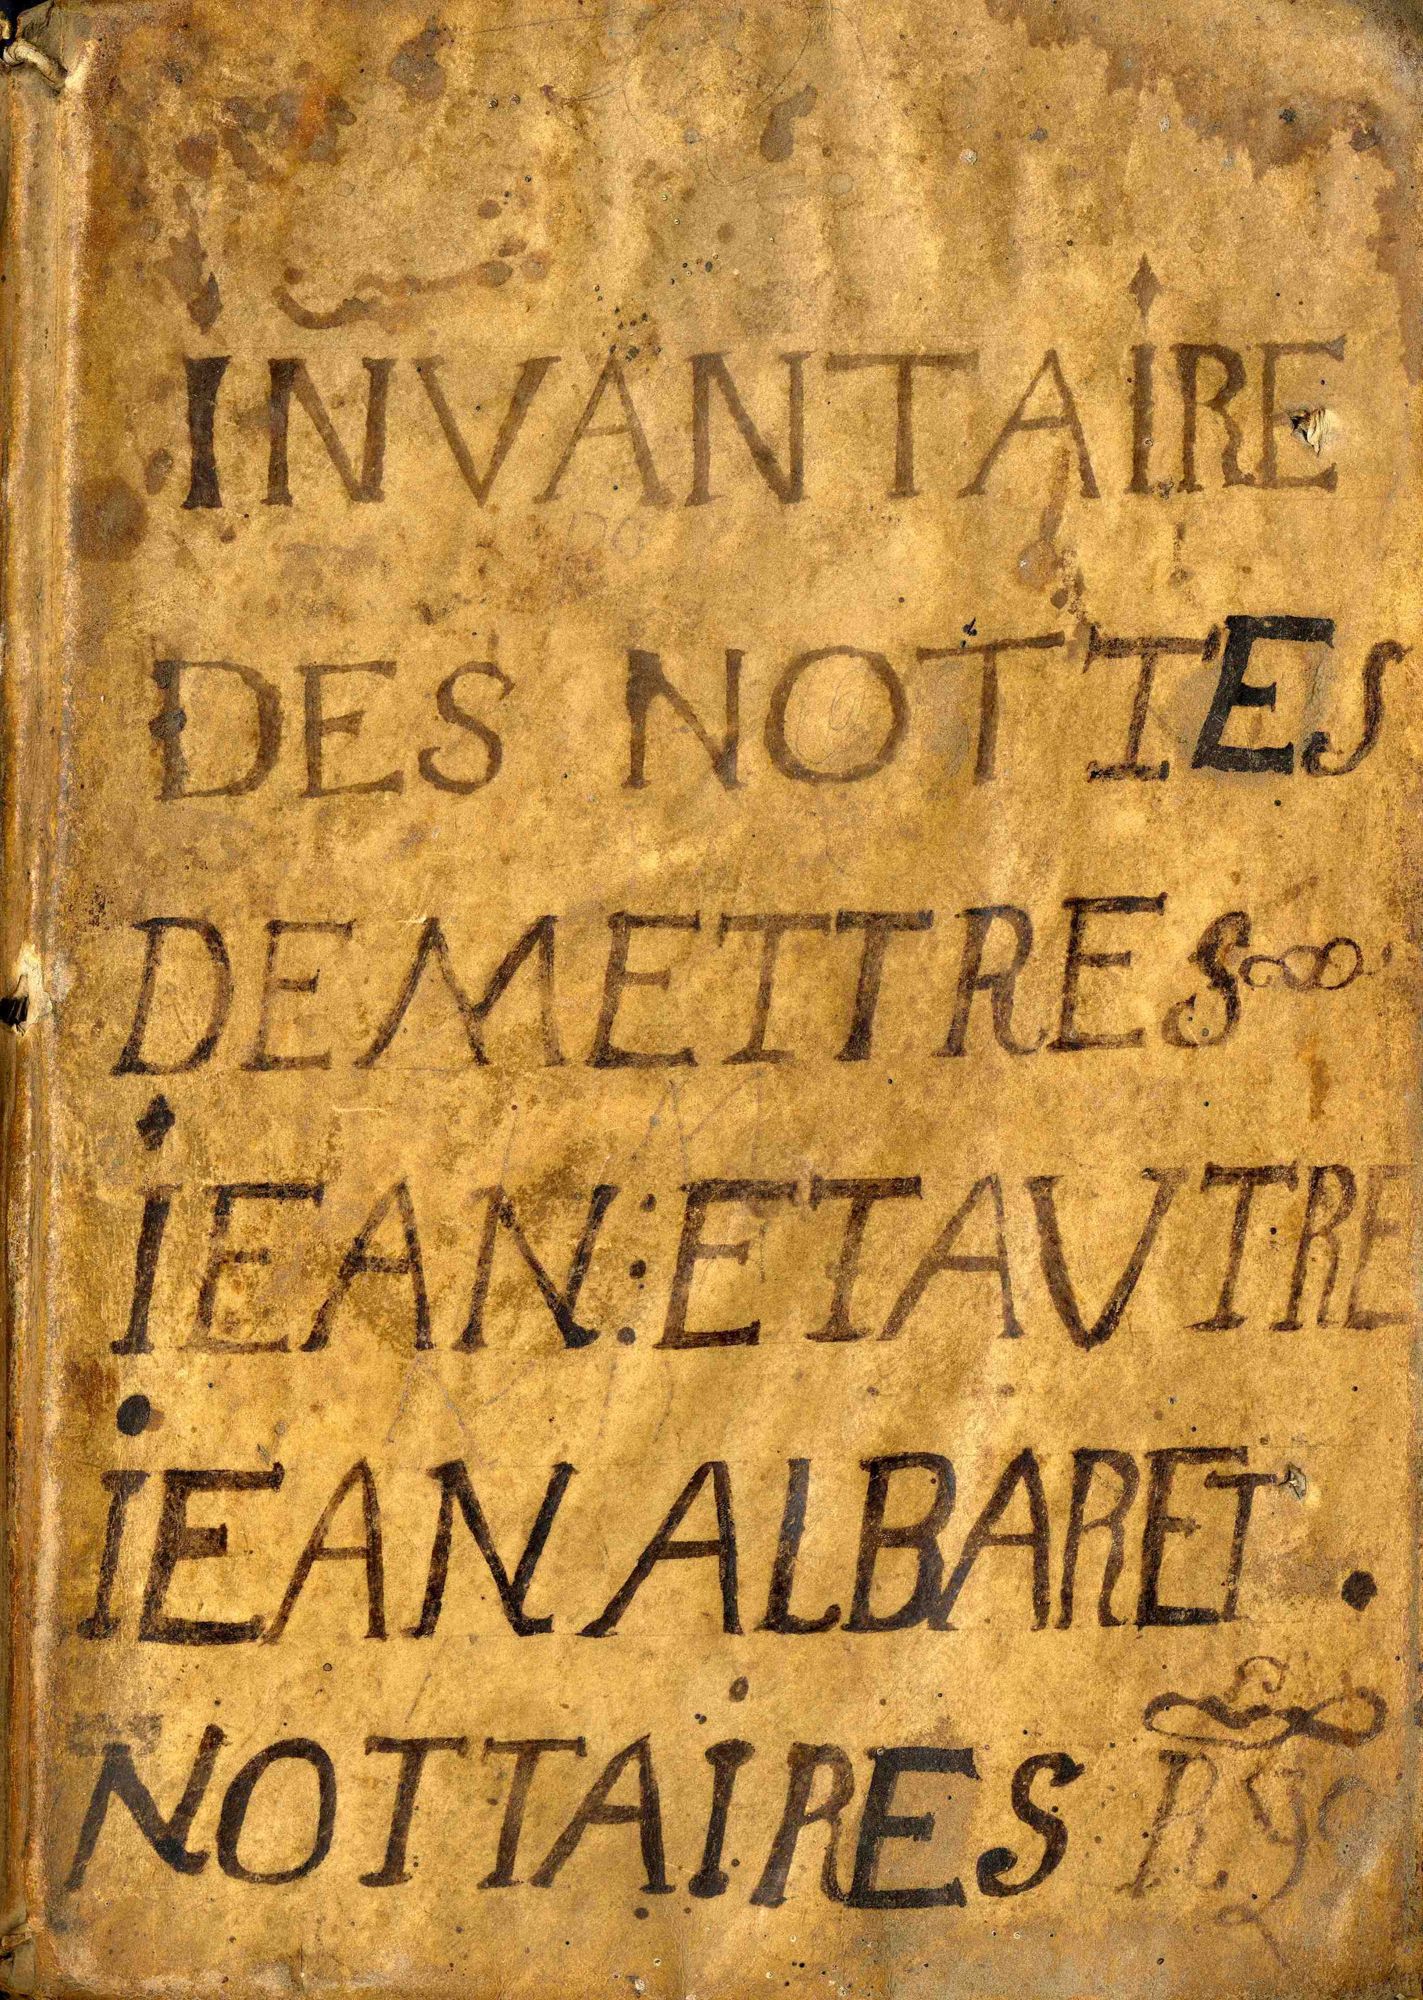 INVANTAIRE
DES NOTTES
DE METTRES
IEAN : ET AVTRE
IEAN ALBARET .
NOTTAIRES